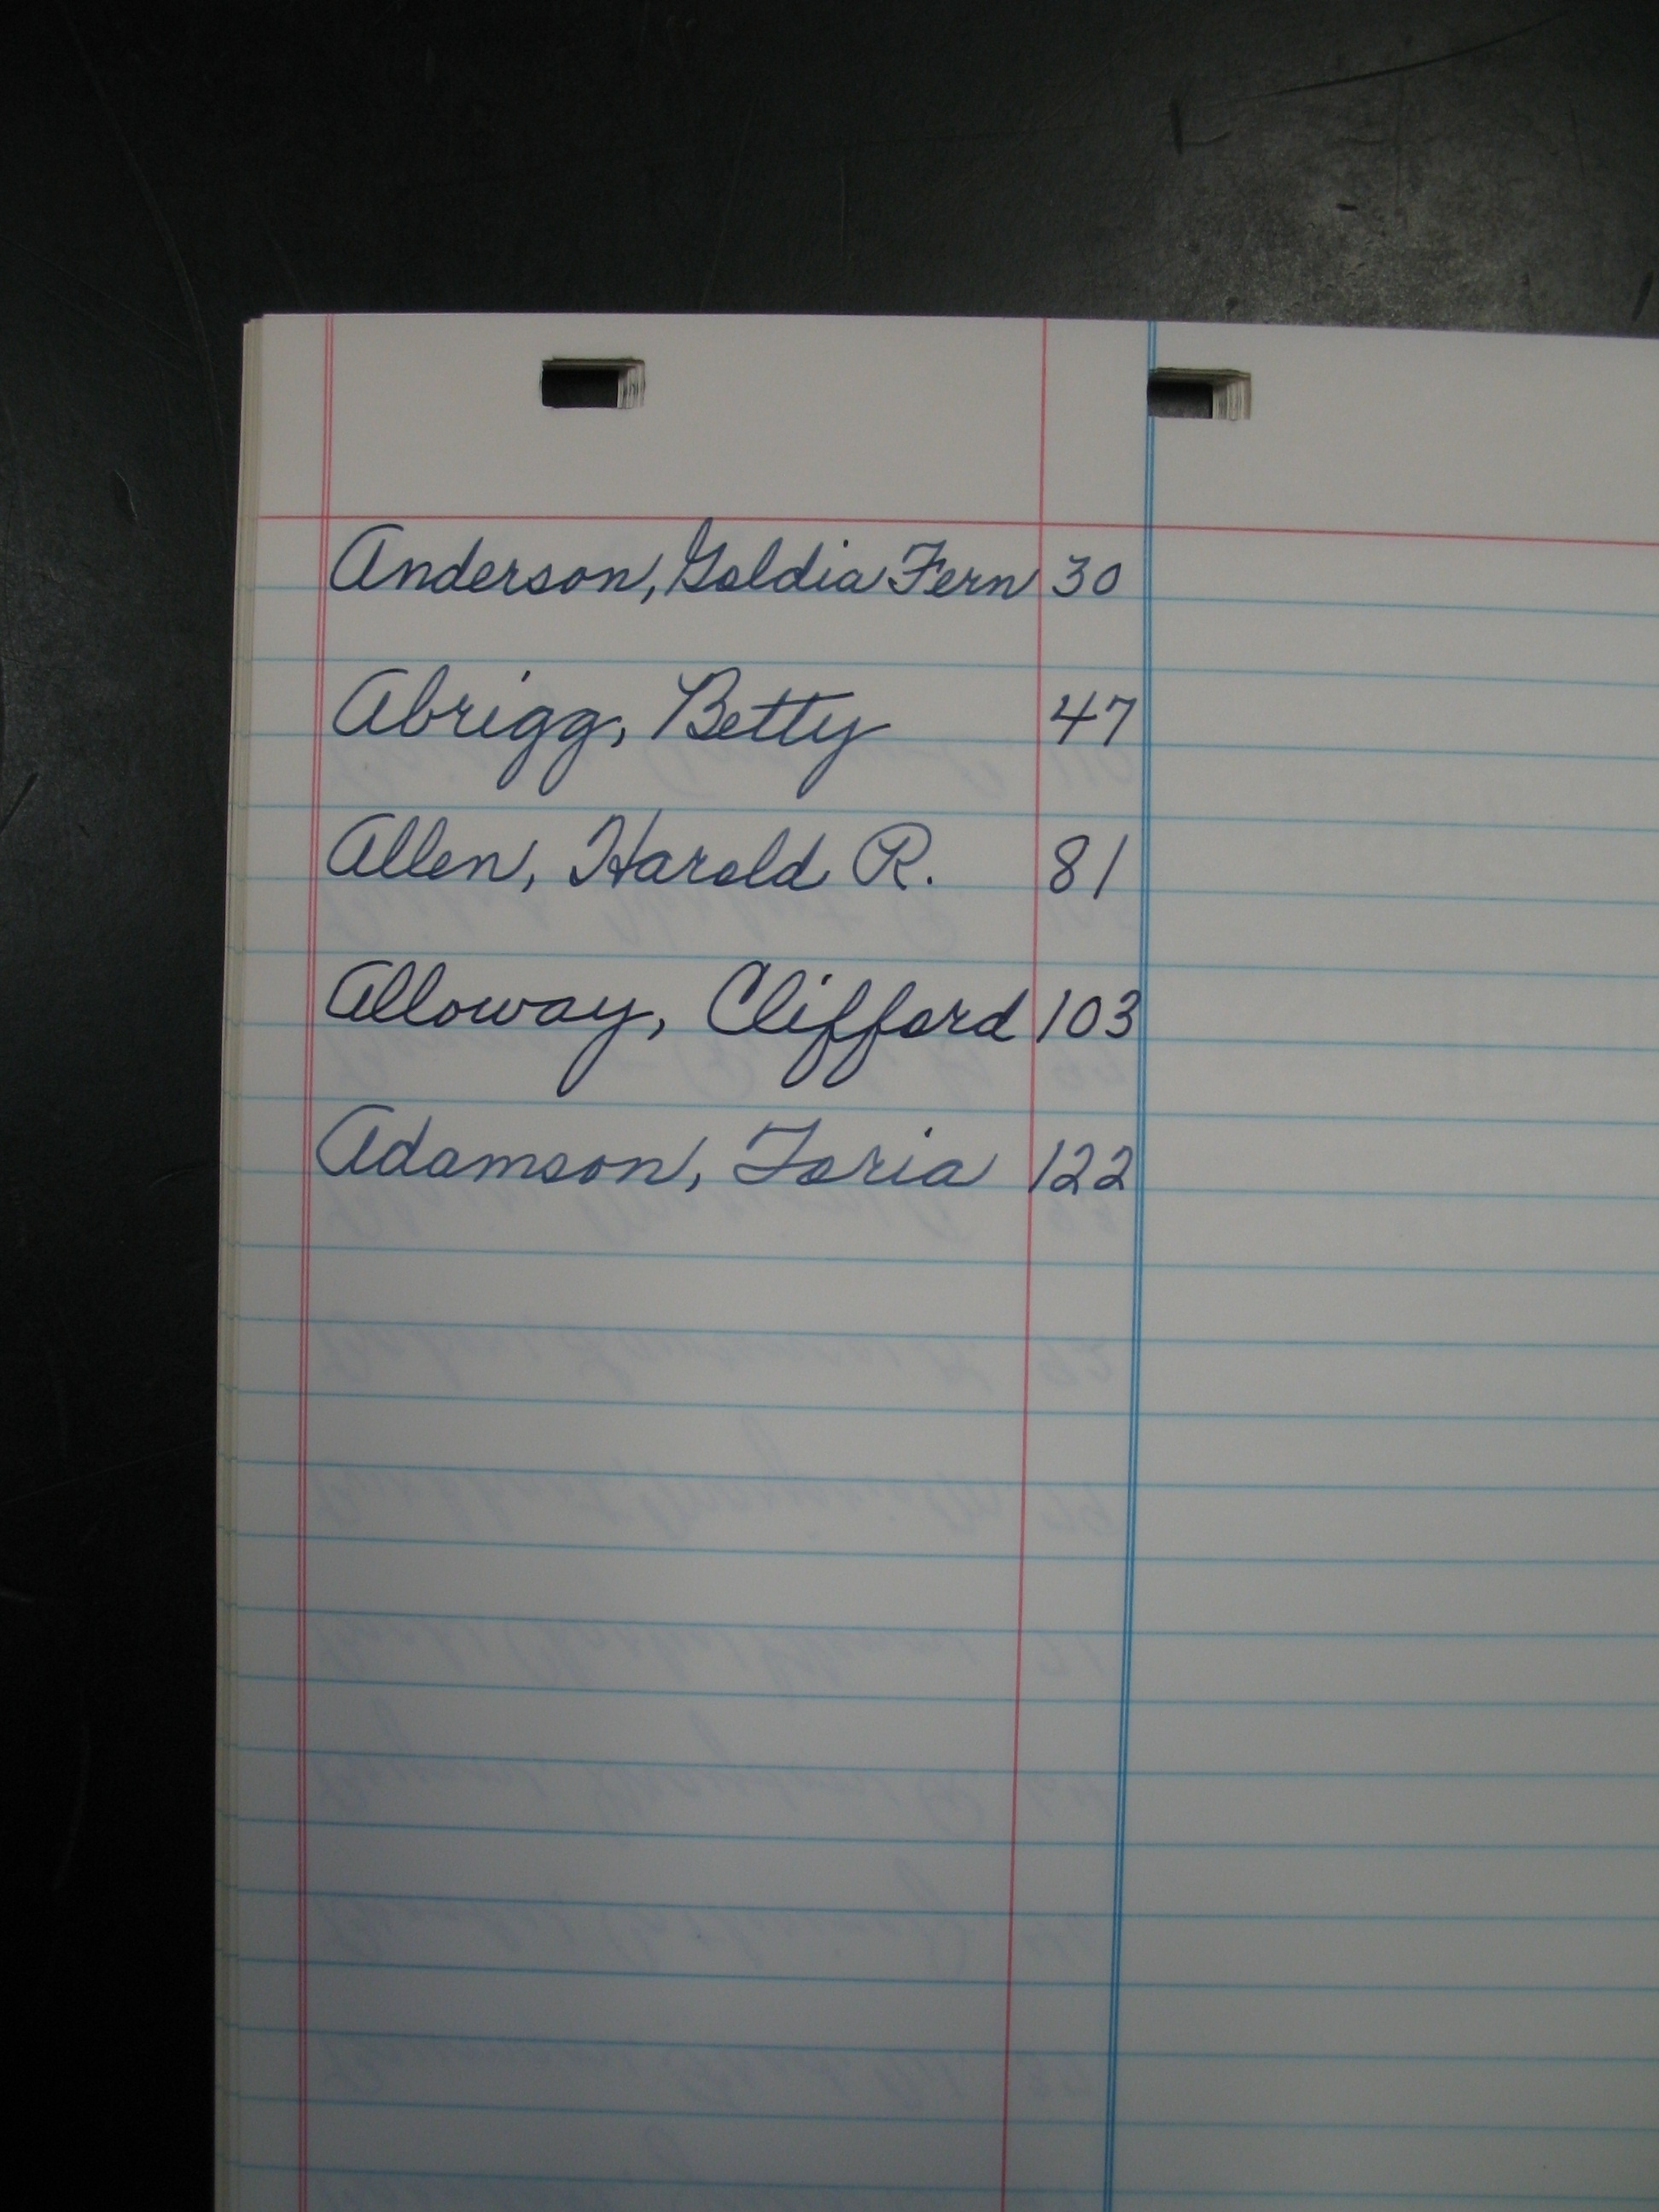 Anderson, Goldia Fern 30
Abrigg, Betty 47
Allen, Harold R. 81
Alloway, Clifford 103
Adamson, Toria 122